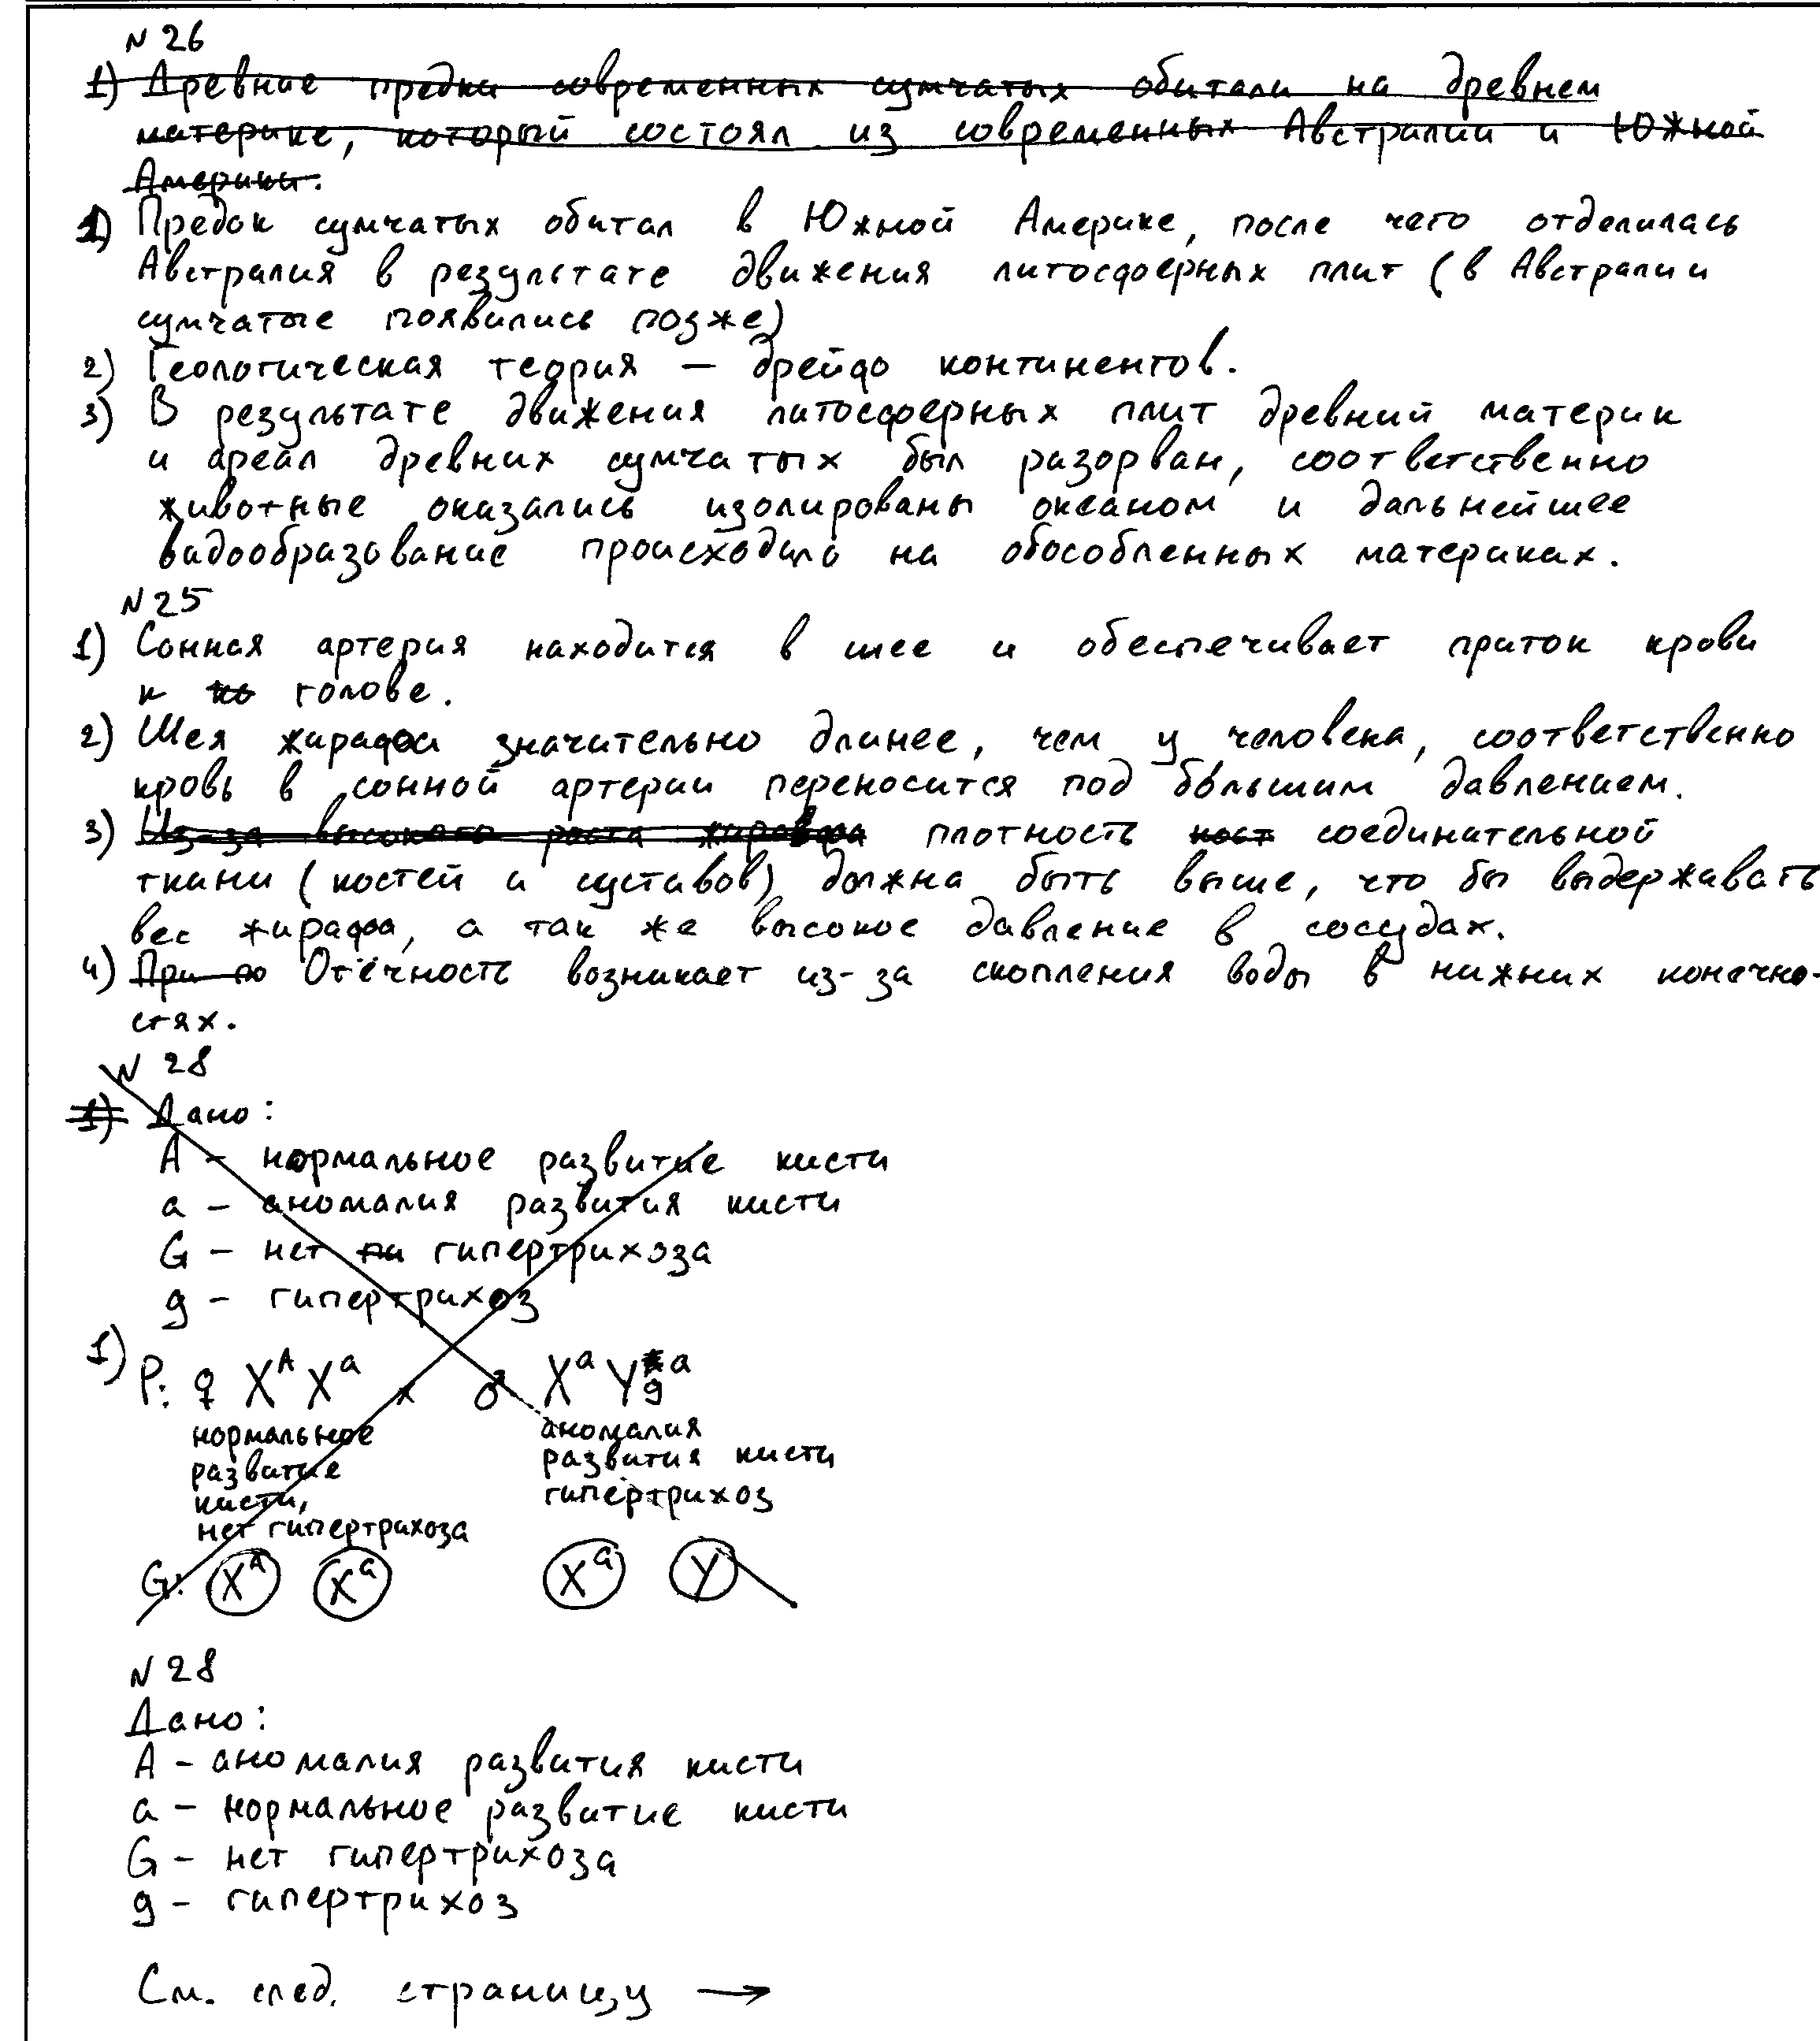 N 26
1) Древние предки современных сумчатых обитали на древнем
материке, который состоял из современных Австралии и Южной
Америки.
1) Предок сумчатых обитал в Южной Америке, после чего отделилась
Австралия в результате движения литосферных плит (в Австралии
сумчатые появились позже)
2) Геологическая теория – дрейф континентов.
3) В результате движения литосферных плит древний материк
и ареал древних сумчатых был разорван, соответственно
животные оказались изолированы океаном и дальнейшее
видообразование происходило на обособленных материках.
N 25
1) Сонная артерия находится в шее и обеспечивает приток крови
к ко голове.
2) Шея жирафа значительно длинее, чем у человека, соответственно
кровь в сонной артерии переносится под бо́льшим давлением.
3) Из-за высокого роста жирафа плотность кост соединительной
ткани (костей и суставов) должна быть выше, что бы выдерживать
вес жирафа, а так же высокое давление в сосудах.
4) При по Отёчность возникает из-за скопления воды в нижних конечно-
стях.
N 28
1) Дано:
A – нормальное развитие кисти
a – аномалия развития кисти
G – нет ги гипертрихоза
g – гипертрихоз
1) P: ♀ X^A X^a x ♂ X^a Y_g^a
нормальное развитие кисти, нет гипертрихоза
аномалия развития кисти гипертрихоз
G: X^A X^a X^a Y
N 28
Дано:
A – аномалия развития кисти
a – нормальное развитие кисти
G – нет гипертрихоза
g – гипертрихоз
См. след. страницу →